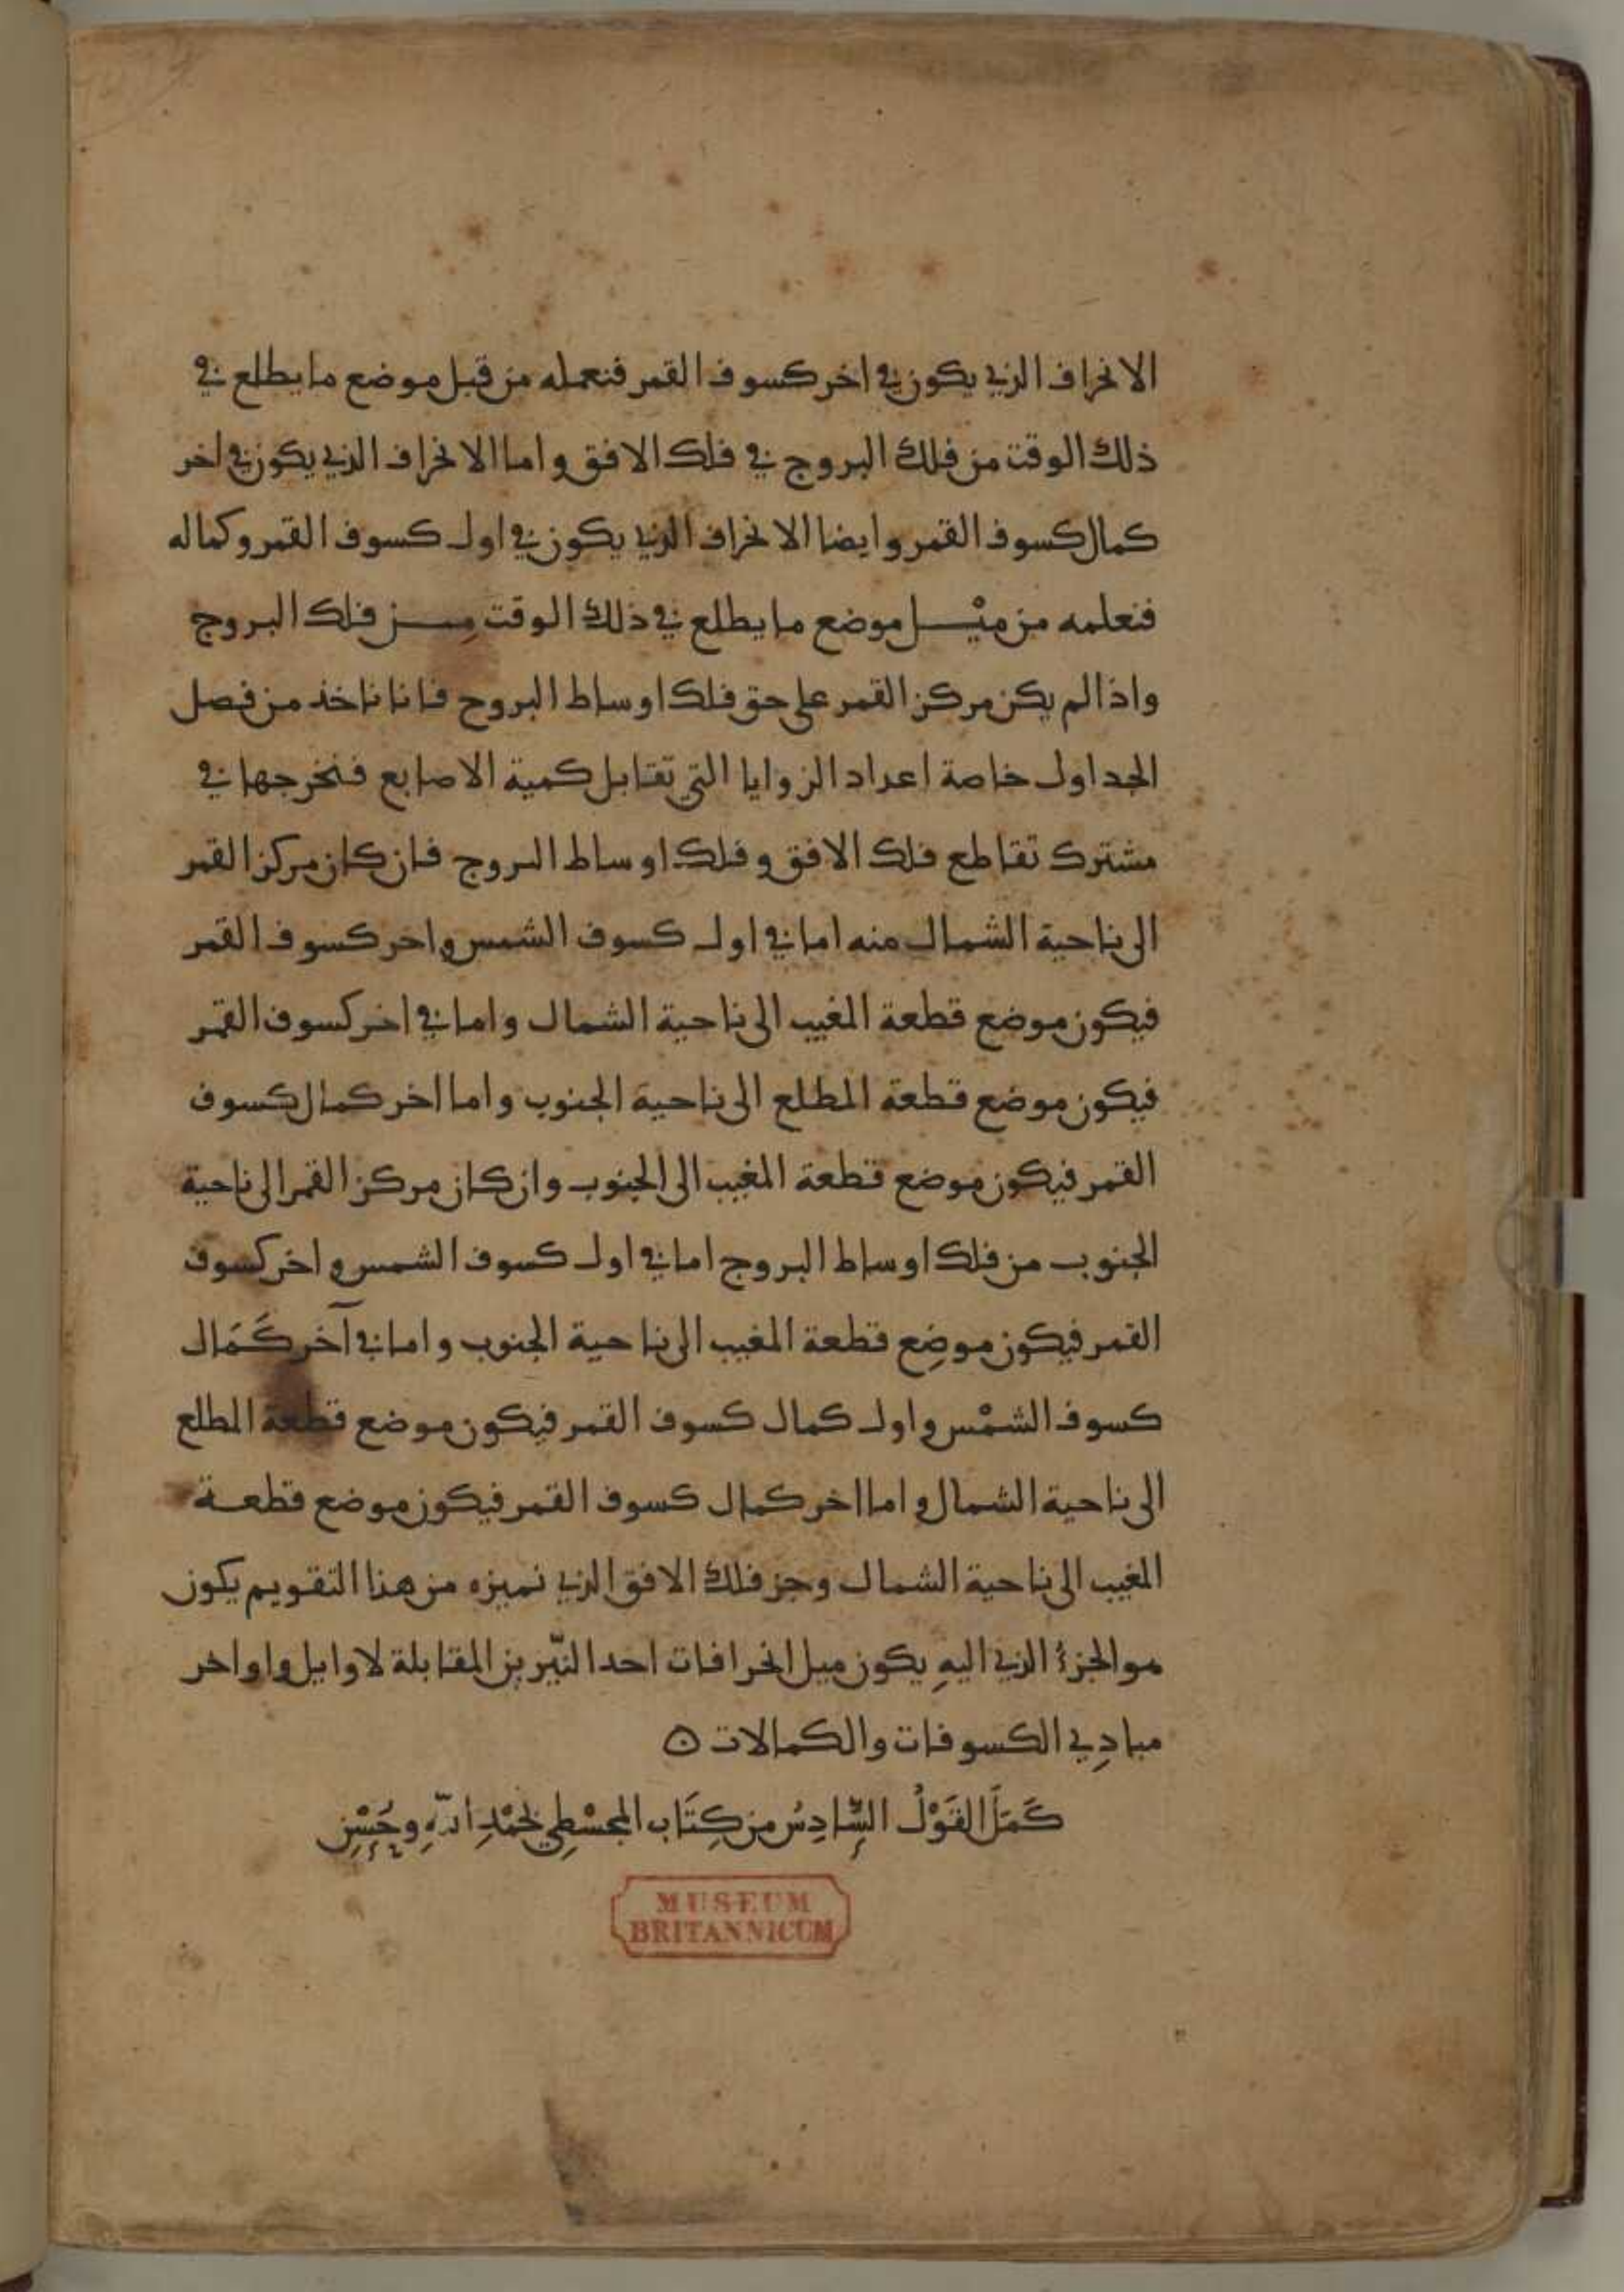 الانحراف الذي يكون في اخر كسوف القمر فنعمله من قبل موضع ما يطلع في
ذلك الوقت من فلك البروج في فلك الافق واما الانحراف الذي يكون في اخر
كمال كسوف القمر وايضا الانحراف الذي يكون في اول كسوف القمر وكماله
فنعلمه من ميْل موضع ما يطلع في ذلك الوقت مِن فلك البروج
واذا لم يكن مركز القمر على حق فلك اوساط البروج فانا ناخذ من فصل
الجداول خاصة اعداد الزوايا التي تقابل كمية الاصابع فنخرجها في
مشترك تقاطع فلك الافق وفلك اوساط البروج فان كان مركز القمر
الى ناحية الشمال منه اما في اول كسوف الشمس واخر كسوف القمر
فيكون موضع قطعة المغيب الى ناحية الشمال واما في اخر كسوف القمر
فيكون موضع قطعة المطلع الى ناحية الجنوب واما اخر كمال كسوف
القمر فيكون موضع قطعة المغيب الى الجنوب وان كان مركز القمر الى ناحية
الجنوب من فلك اوساط البروج اما في اول كسوف الشمس واخر كسوف
القمر فيكون موضِع قطعة المغيب الى ناحية الجنوب واما في آخر كَمَال
كسوف الشمْس واول كمال كسوف القمر فيكون موضع قطعة المطلع
الى ناحية الشمال واما اخر كمال كسوف القمر فيكون موضع قطعة
المغيب الى ناحية الشمال وجز فلك الافق الذي نميزه من هذا التقويم يكون
هو الجزؤ الذي اليهِ يكون ميل انحرافات احد النيّرين المقابلة لاوايل واواخر
مبادِي الكسوفات والكمالات ه
كَمَلَ القَوْلُ السَّادِسُ من كِتَاب المجسْطِي بحَمْدِ اللّهِ وحُسْنِ
MUSEUM
BRITANNICUM